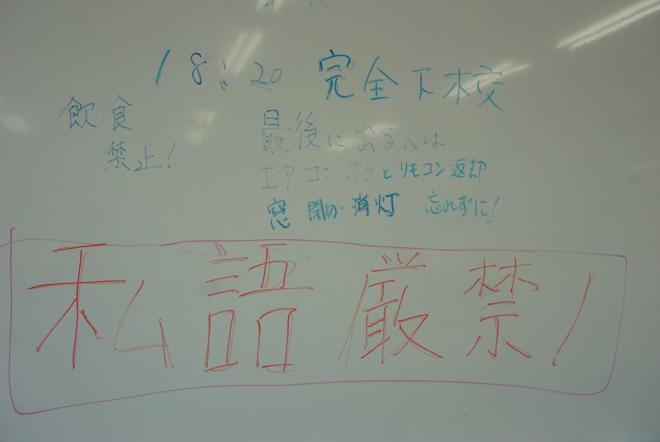 18:20 完全下校
飲食
禁止!
最後に出る人は
エアコンオフとリモコン返却
窓閉め・消灯 忘れずに!
私語厳禁!